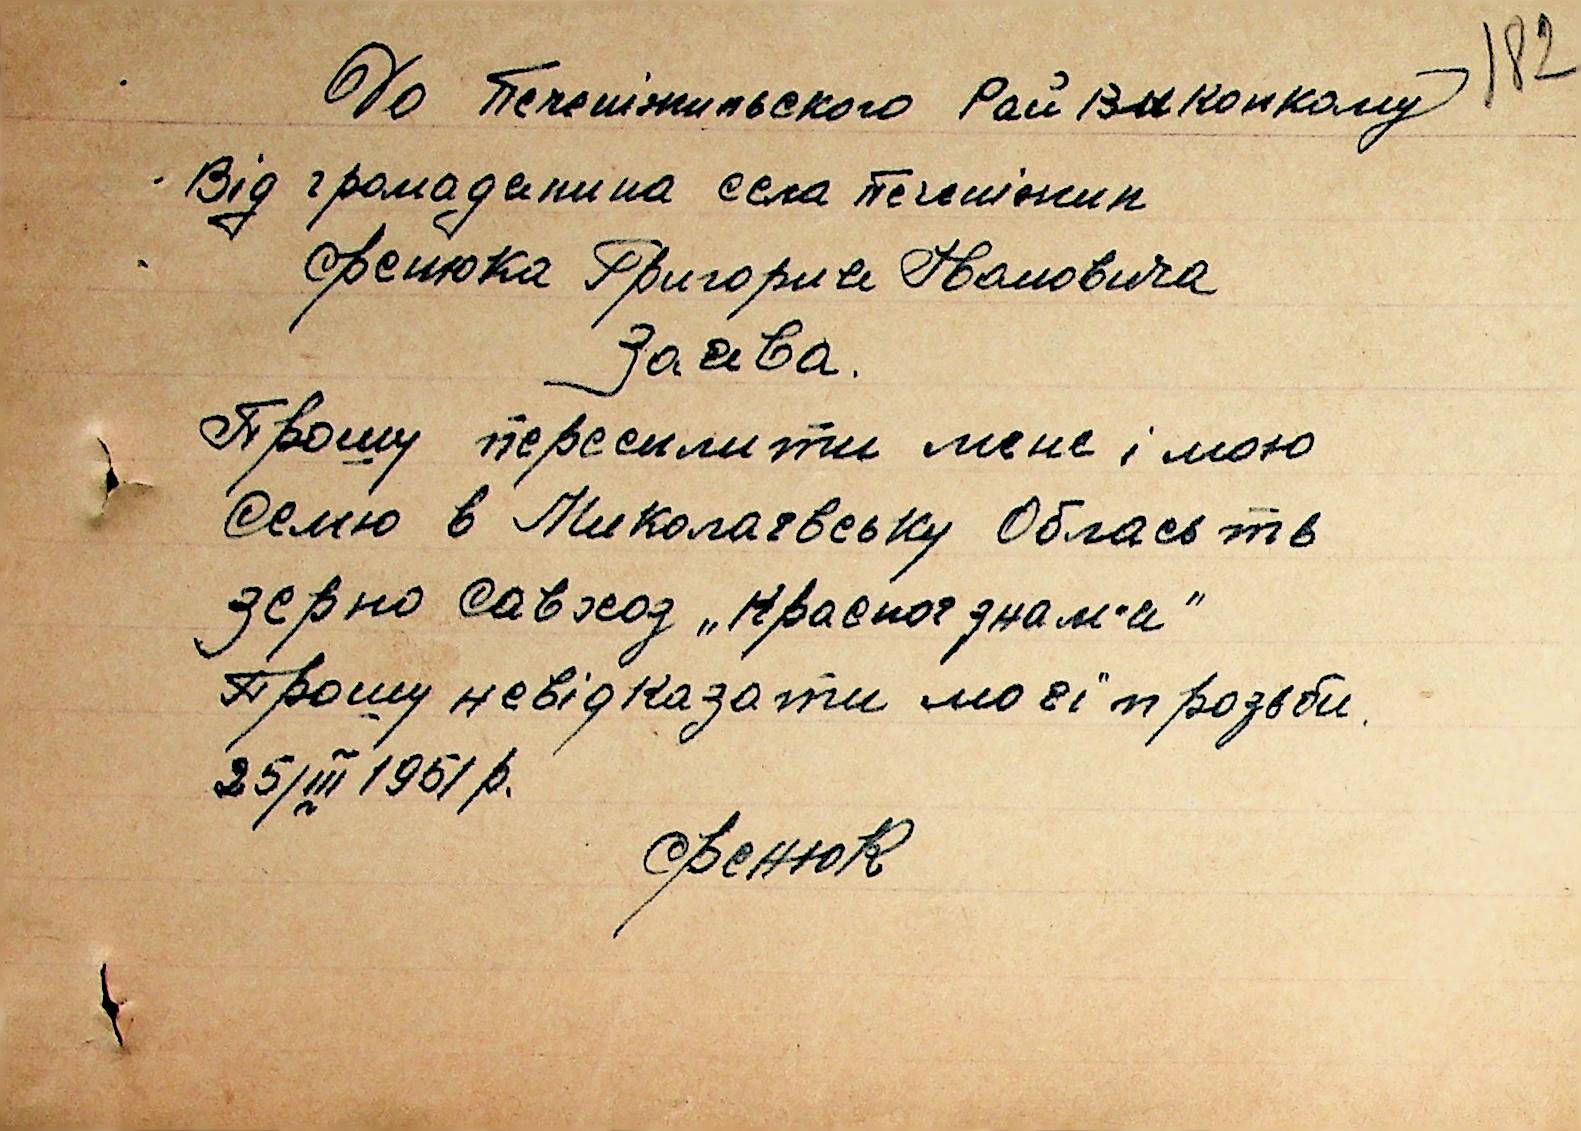 182
До Печеніжинського Рай Виконкому
Від громадянина села Печеніжин
Фенюка Григорія Івановича
Заява.
Прошу переселити мене і мою
семю в Миколаївську Область
зерно Савхоз „Красноє знам'я"
Прошу невідказати моєї прозьби.
25/III 1951 р.
Фенюк